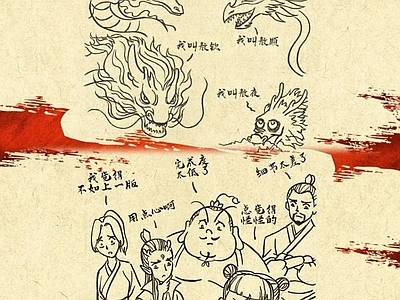 我叫敖钦
我叫敖顺
我叫敖夜
我觉得
不如上一版
用点心啊
完成度
太低了
总觉得
怪怪的
细节太差了